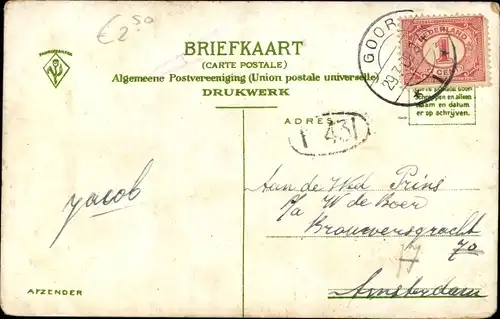 €2.50
FABRIEKSMERK
BRIEFKAART
(CARTE POSTALE)
Algemeene Postvereeniging (Union postale universelle)
DRUKWERK
GOOR
NEDERLAND
1
CENT
en alleen
naam en datum
er op schrijven.
ADRES
431
Jacob
Aan de Wed Prins
p/a W de Boer
Brouwersgracht
70
Amsterdam
AFZENDER